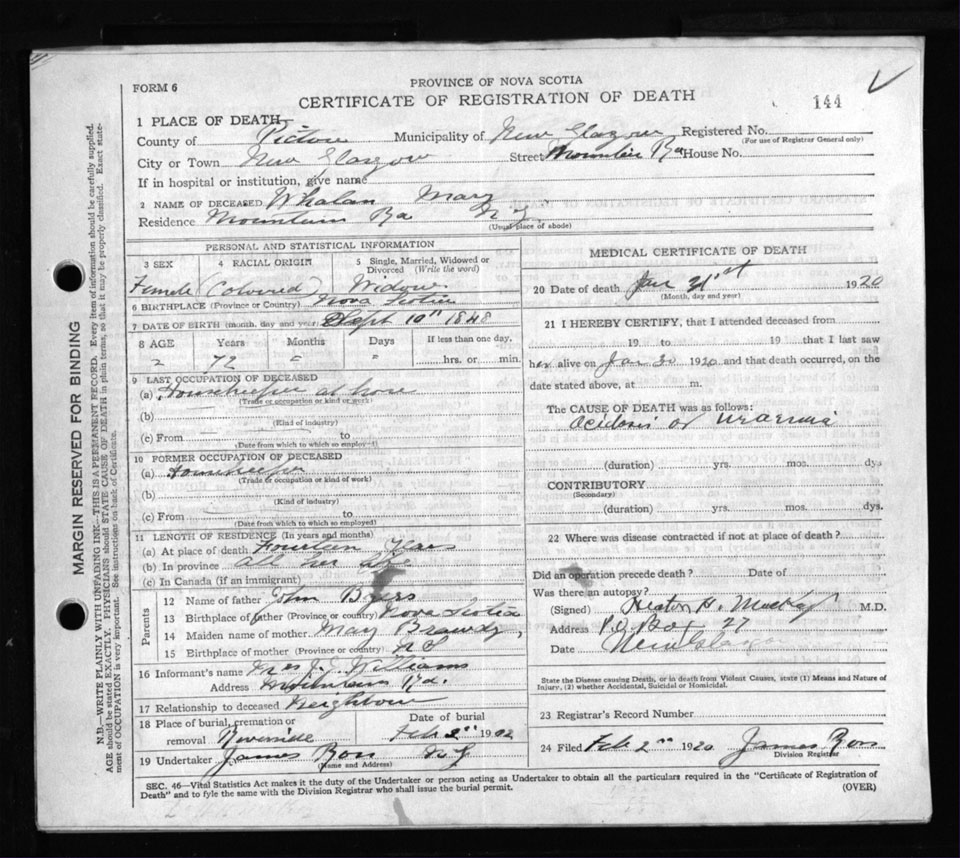 FORM 6
PROVINCE OF NOVA SCOTIA
CERTIFICATE OF REGISTRATION OF DEATH
144
1 PLACE OF DEATH—
County of Pictou Municipality of New Glasgow Registered No.
(For use of Registrar General only)
City or Town New Glasgow Street Mountain Rd House No.
If in hospital or institution, give name
2 NAME OF DECEASED Whalan Mary
Residence Mountain Rd N. G.
(Usual place of abode)
PERSONAL AND STATISTICAL INFORMATION
3 SEX 4 RACIAL ORIGIN 5 Single, Married, Widowed or Divorced (Write the word)
Female (Colored) Widow
6 BIRTHPLACE (Province or Country) Nova Scotia
7 DATE OF BIRTH (month, day and year) Sept 10" 1848
8 AGE Years Months Days If less than one day,
72 " " hrs. or min.
9 LAST OCCUPATION OF DECEASED
(a) Housekeeper at home
(Trade or occupation or kind of work)
(b)
(Kind of industry)
(c) From to
(Date from which to which so employed)
10 FORMER OCCUPATION OF DECEASED
(a) Housekeeper
(Trade or occupation or kind of work)
(b)
(Kind of industry)
(c) From to
(Date from which to which so employed)
11 LENGTH OF RESIDENCE (In years and months)
(a) At place of death Fourteen Years
(b) In province all her life
(c) In Canada (if an immigrant)
Parents
12 Name of father John Byers
13 Birthplace of father (Province or country) Nova Scotia
14 Maiden name of mother May Brawdy
15 Birthplace of mother (Province or country) N S
16 Informant's name Mrs J. J. Williams
Address Mountain Rd.
17 Relationship to deceased Neighbour
18 Place of burial, cremation or removal Riverside Date of burial Feb 2nd 1902
19 Undertaker James Ross N G
(Name and Address)
MEDICAL CERTIFICATE OF DEATH
20 Date of death Jan 31st 1920
(Month, day and year)
21 I HEREBY CERTIFY, that I attended deceased from
19 to 19 that I last saw
her alive on Jan 30 1920 and that death occurred, on the
date stated above, at m.
The CAUSE OF DEATH was as follows:
Acidosis or Uraemia
(duration) yrs. mos. dys
CONTRIBUTORY
(Secondary)
(duration) yrs. mos. dys.
22 Where was disease contracted if not at place of death?
Did an operation precede death? Date of
Was there an autopsy?
(Signed) M.D.
Address P.O. Box 27
Date New Glasgow
State the Disease causing Death, or in death from Violent Causes, state (1) Means and Nature of Injury, (2) whether Accidental, Suicidal or Homicidal.
23 Registrar's Record Number
24 Filed Feb 2nd 1920 James Ross
Division Registrar
SEC. 46—Vital Statistics Act makes it the duty of the Undertaker or person acting as Undertaker to obtain all the particulars required in the "Certificate of Registration of
Death" and to fyle the same with the Division Registrar who shall issue the burial permit. (OVER)
MARGIN RESERVED FOR BINDING
N.B.—WRITE PLAINLY WITH UNFADING INK—THIS IS A PERMANENT RECORD. Every item of information should be carefully supplied.
AGE should be stated EXACTLY. PHYSICIANS should STATE CAUSE OF DEATH in plain terms, so that it may be properly classified. Exact statement of OCCUPATION is very important. See instructions on back of Certificate.